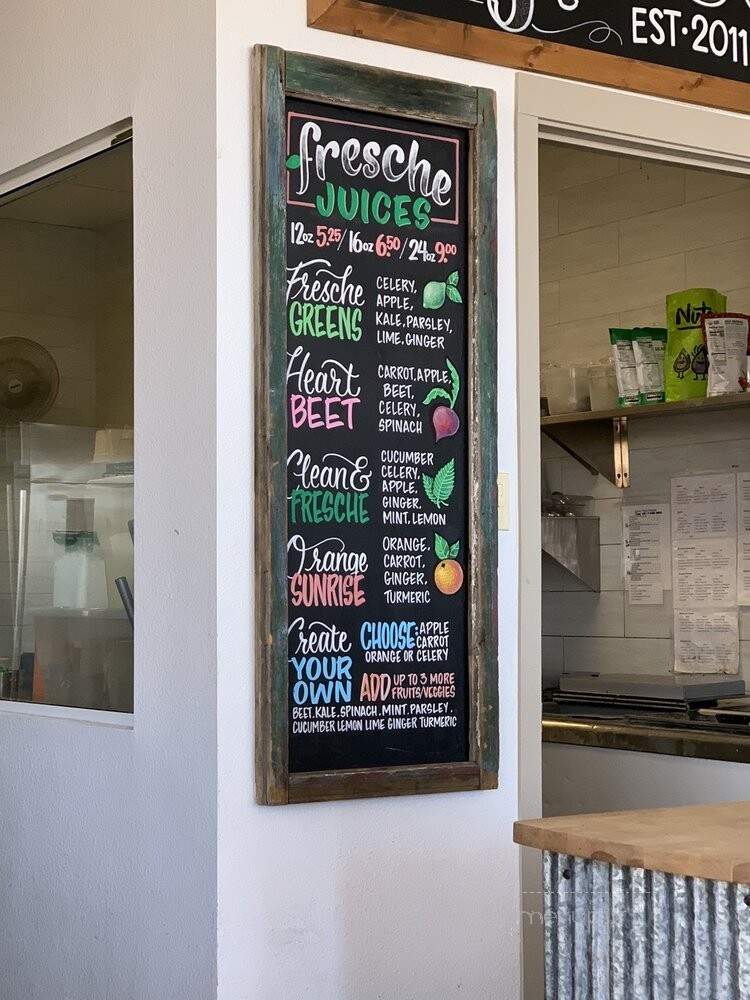 EST·2011
fresche
JUICES
12oz 5.25/16oz 6.50/24oz 9.00
Fresche
GREENS
CELERY,
APPLE,
KALE, PARSLEY,
LIME, GINGER
Heart
BEET
CARROT, APPLE,
BEET,
CELERY,
SPINACH
Clean &
FRESCHE
CUCUMBER
CELERY,
APPLE,
GINGER,
MINT, LEMON
Orange
SUNRISE
ORANGE,
CARROT,
GINGER,
TURMERIC
Create
YOUR
OWN
CHOOSE: APPLE
CARROT
ORANGE OR CELERY
ADD UP TO 3 MORE
FRUITS/VEGGIES
BEET. KALE. SPINACH. MINT. PARSLEY.
CUCUMBER LEMON LIME GINGER TURMERIC